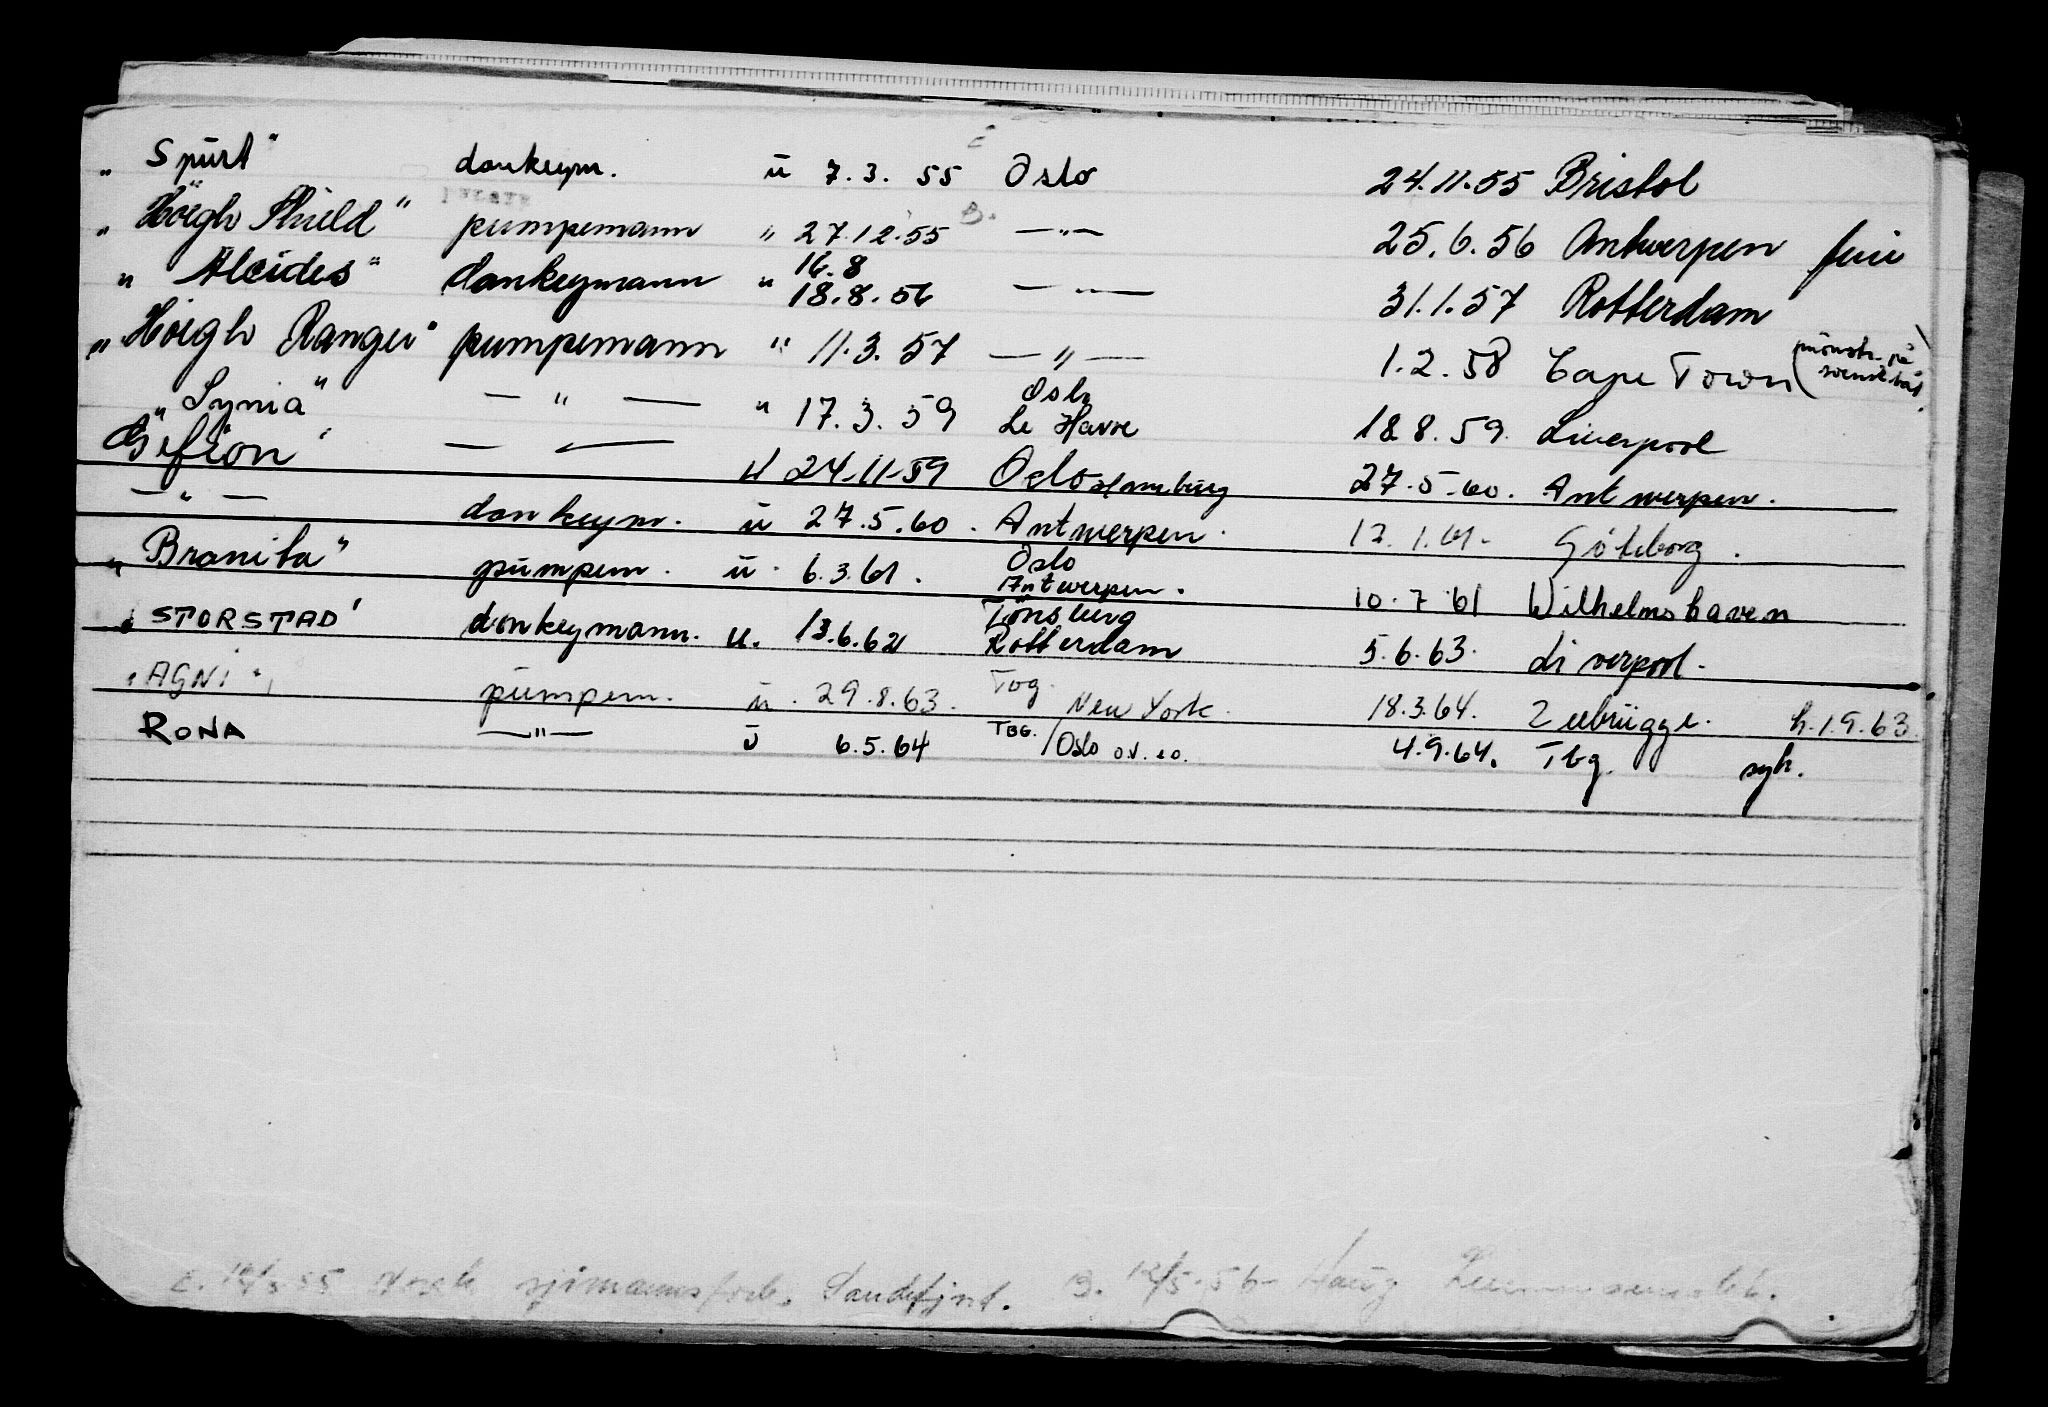 „ Spurt" donkeym. u 7.3.55 Oslo 24.11.55 Bristol
„ Höegh Shield" pumpemann " 27.12.55 B. —"— 25.6.56 Antwerpen ferie
„ Alcides" donkeymann " 16.8 18.8.56 —"— 31.1.57 Rotterdam
„ Höegh Ranger" pumpemann " 11.3.57 —"— 1.2.58 Cape Town (mönstr. på svensk båt)
„ Synia" —"— " 17.3.59 Oslo Le Havre 18.8.59 Liverpool
Gefion" —"— u 24.11.59 Oslo Hamburg 27.5.60. Antwerpen.
—"— donkeym. u 27.5.60. Antwerpen. 12.1.61. Göteborg.
„ Branita" pumpem. u. 6.3.61. Oslo Antwerpen. 10.7.61 Wilhelmshaven
„ STORSTAD" donkeymann. u. 13.6.62 Tönsberg Rotterdam 5.6.63. Liverpool.
„ AGNI", pumpem. u. 29.8.63. New York. 18.3.64. Zeebrügge. h.1.9.63
RONA —"— U 6.5.64 TBG./Oslo 4.9.64. Tbg. syk.
E. 12/3 55 Norsk sjömannsforb. Sandefjord. B. 12/5-56 Haug